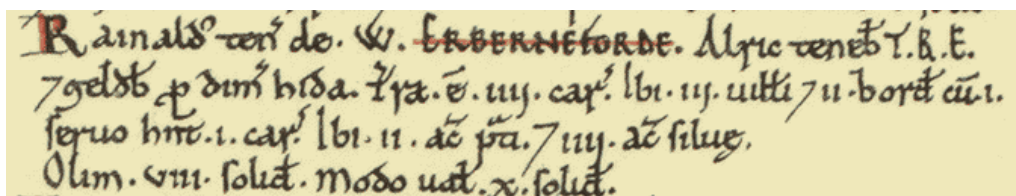 Rainald' ten' de. W. ERBERNEFORDE. Alric teneb̄ T.R.E.
⁊ geld̄b ꝓ dim' hida. Tr̄a. ē. iiii. car'. Ibi. iii. uilli ⁊ ii. bord̄ cū. i.
seruo hn̄t. i. car'. Ibi. ii. ac̄ p̄ti. ⁊ iiii. ac̄ siluę.
Olim. viii. solid̄. Modo ual̄. x. solid̄.